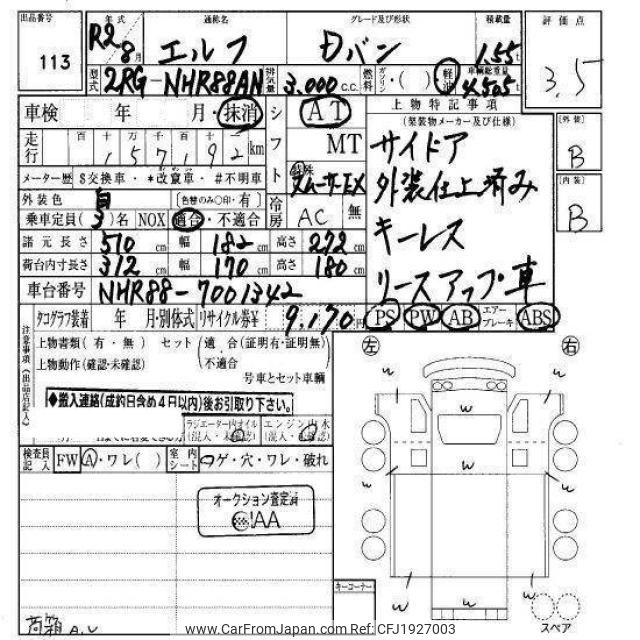 出品番号 年式 通称名 グレード及び形状 積載量 評価点
113 R2 8月 エルフ Dバン 1.55t 3.5
型式 2RG-NHR88AN 排気量 3.000 C.C. 燃料 ガソリン・( ) 軽油 車輌総重量 4.505t
車検 年 月・抹消 シフト AT 上物特記事項
(架装物メーカー及び仕様) 〔外装〕
走行 百 十 万 千 百 十 一 MT サイドア B
157,192 km
メーター歴 $交換車・*改竄車・#不明車 特殊 スムーサーEX 外装仕上済み 〔内装〕
外装色 白 〔色替のみ○印・有〕 冷房 AC 無 B
乗車定員(3)名 NOX 適合・不適合 キーレス
諸元長さ 510cm 幅 182cm 高さ 272cm
荷台内寸長さ 312cm 幅 170cm 高さ 180cm リースアップ車
車台番号 NHR88-7001342
タコグラフ装着 年 月・別体式 リサイクル券¥ 9,170円 PS PW AB エアーブレーキ ABS
注意事項(出品店記入) 上物書類(有・無) セット(適合(証明有・証明無) 左 右
上物動作(確認・未確認) 不適合
号車とセット車輌
◆搬入連絡(成約日含め4日以内)後お引取り下さい。
ラジエーター内オイル エンジン内水
(混入・未確認) (混入・未確認)
検査員記入 FW A・ワレ( ) 室内シート コゲ・穴・ワレ・破れ
オークション査定済
AA
キーコーナー
荷箱 A.U スペア
w w w w w w w w w w w w
www.CarFromJapan.com Ref: CFJ1927003